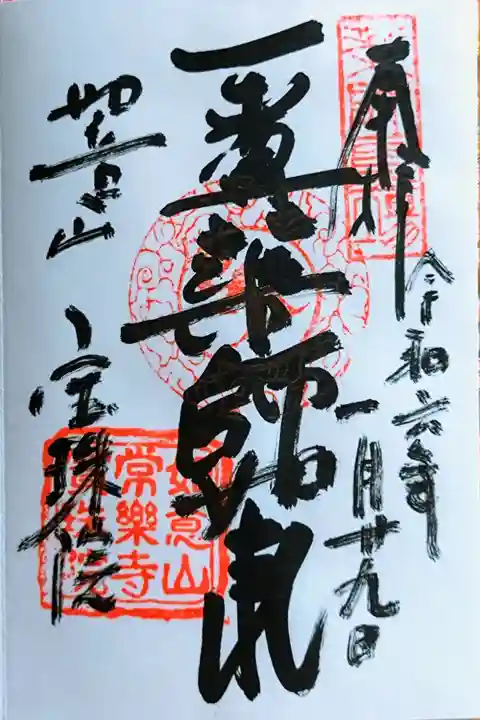 奉拝
令和六年
一月廿九日
薬師尊
如意山
宝珠院
如意山
常樂寺